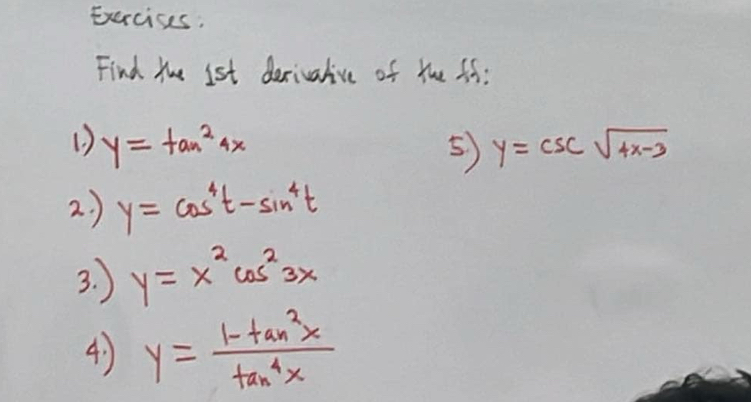 Exercises:
Find the 1st derivative of the ff:
1.) y = tan² 4x
2.) y = cos⁴t - sin⁴t
3.) y = x² cos² 3x
4.) y = 1 - tan²x / tan⁴x
5.) y = csc √4x-3